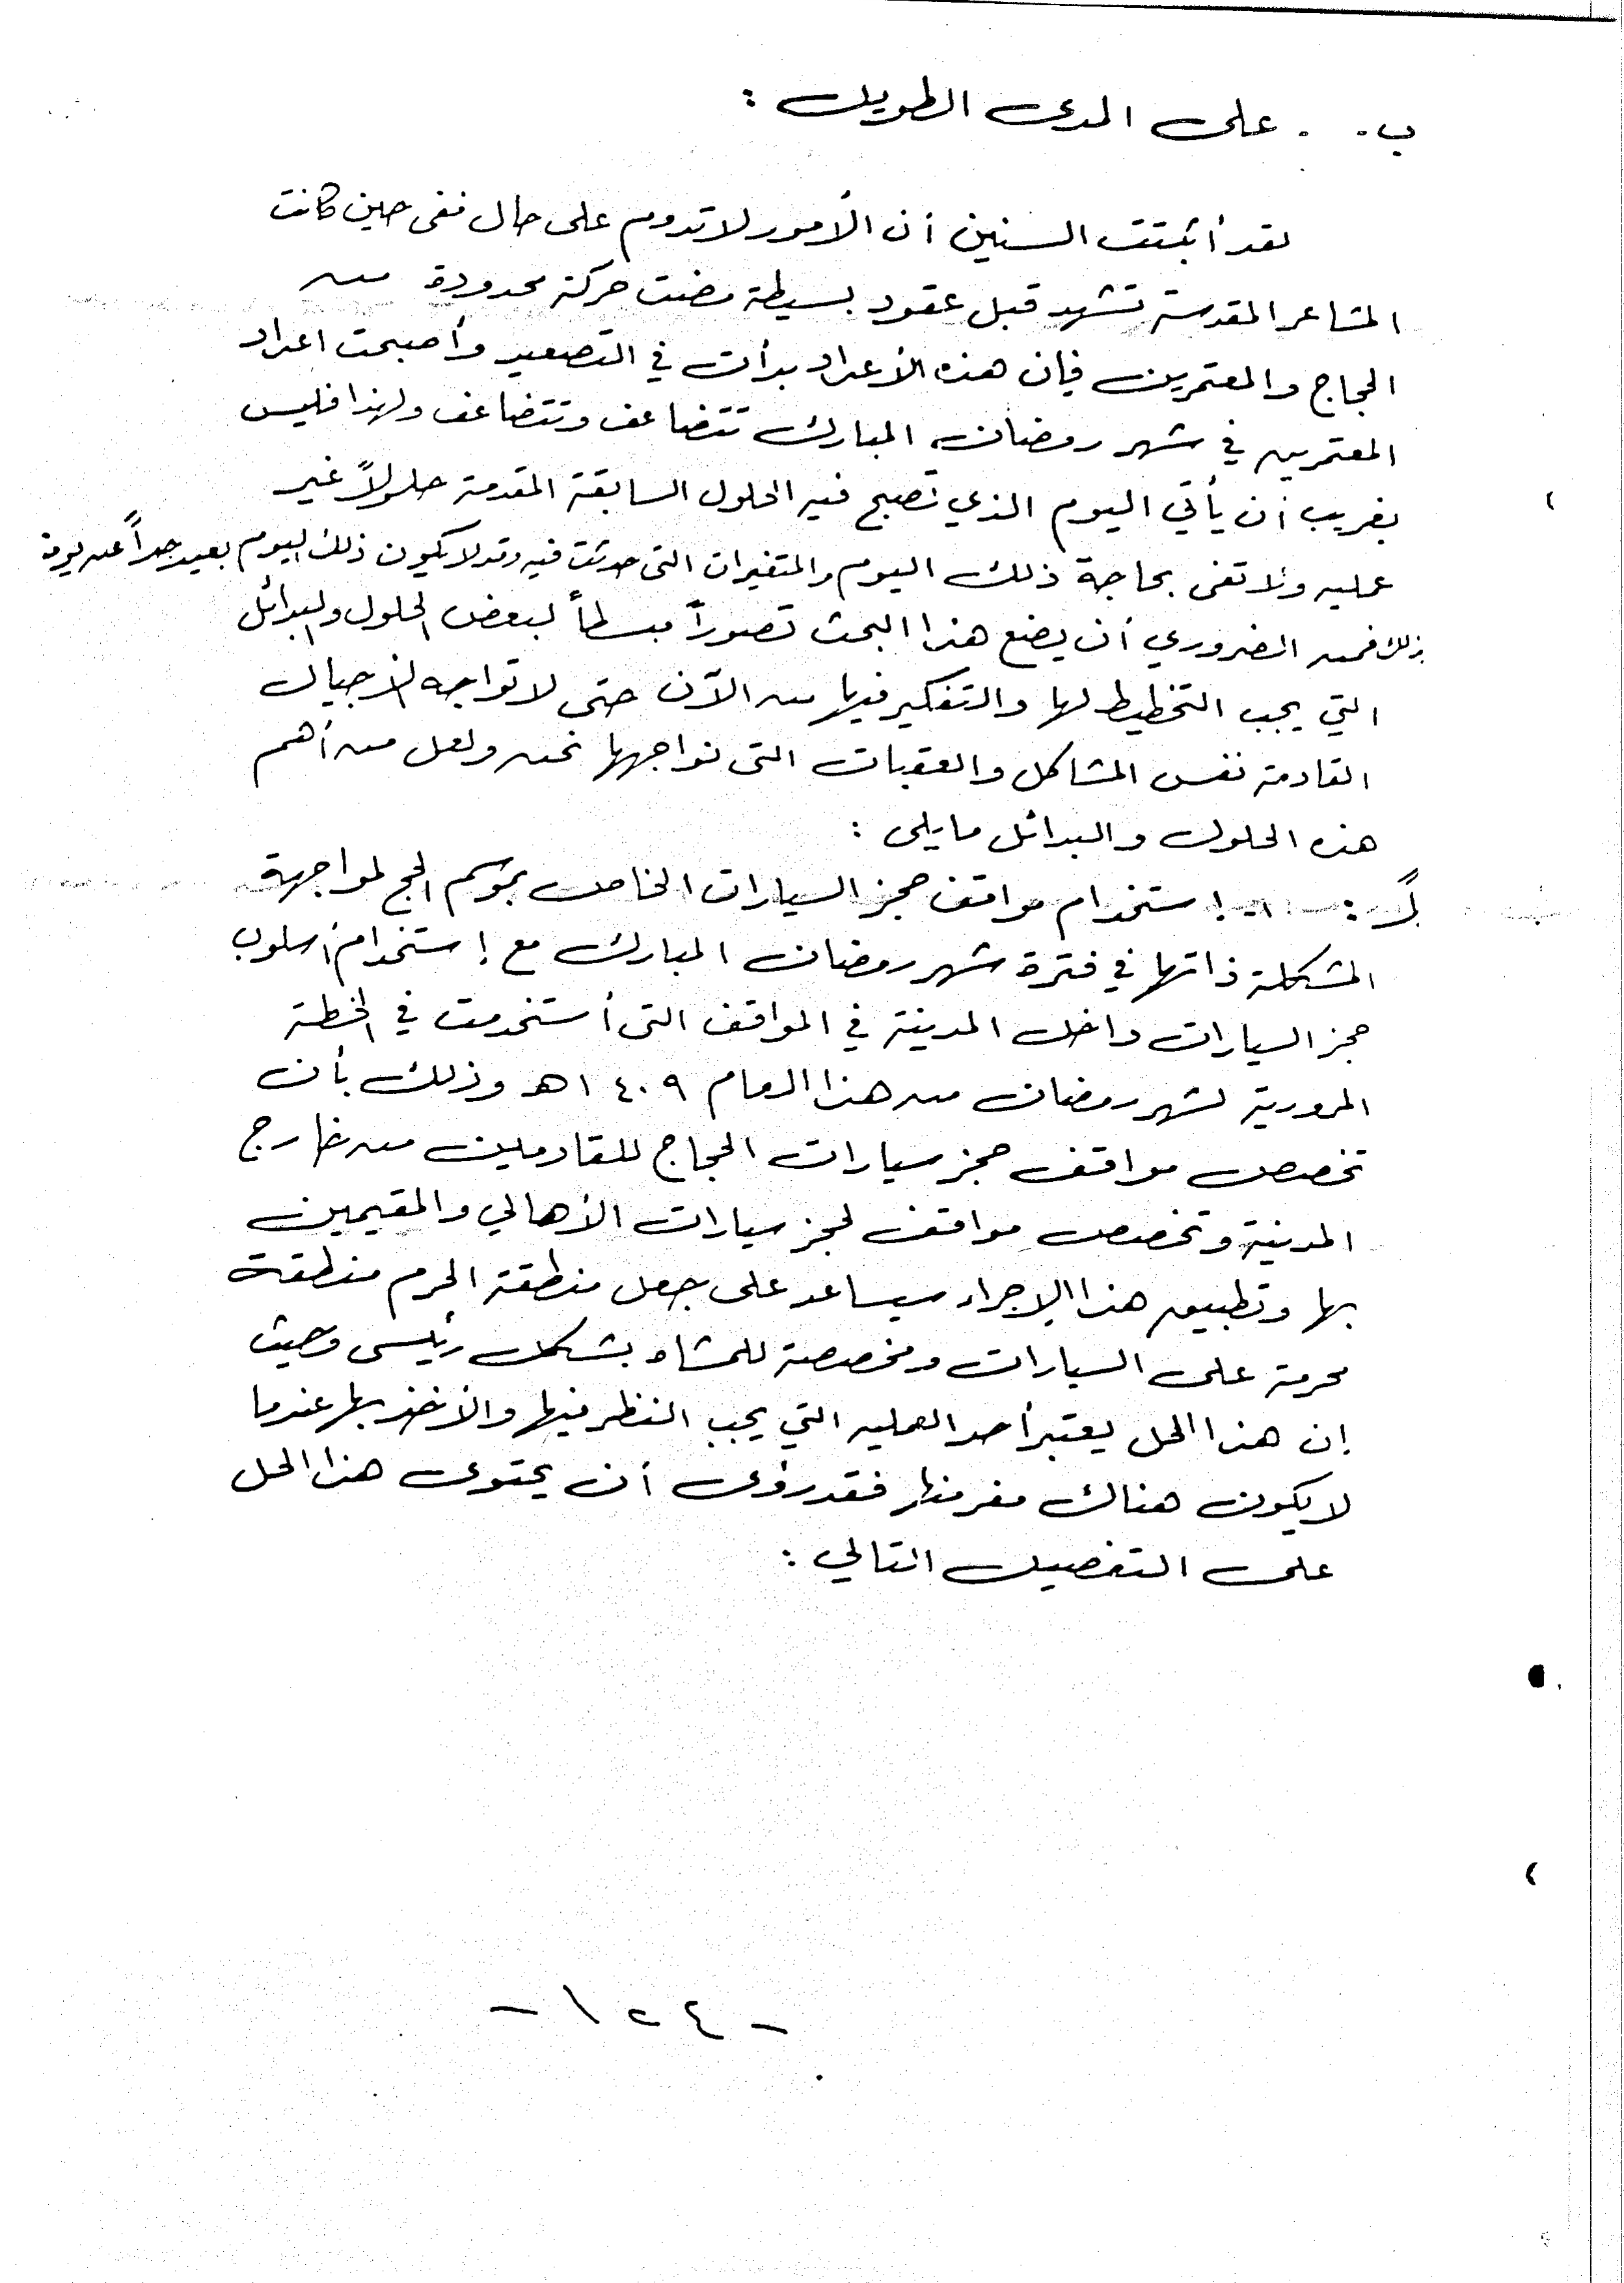 ب . . على المدى الطويل :
لقد أثبتت السنين أن الأمور لا تدوم على حال ففى حين كانت
المشاعر المقدسة تشهد قبل عقود بسيطة مضت حركة محدودة من
الحجاج والمعتمرين فإن هذه الأعداد بدأت في التصعيد وأصبحت اعداد
المعتمرين في شهر رمضان المبارك تتضاعف وتتضاعف ولهذا فليس
بغريب أن يأتي اليوم الذي تصبح فيه الحلول السابقة المقدمة حلولاً غير
عمليه ولا تفى بحاجة ذلك اليوم والمتغيرات التى حدثت فيه وقد لا يكون ذلك اليوم بعيد جداً عن يومنا
لذلك فمن الضروري أن يضع هذا البحث تصوراً مبسطاً لبعض الحلول والبدائل
التي يجب التخطيط لها والتفكير فيها من الآن حتى لا تواجه الأجيال
القادمة نفس المشاكل والعقبات التى نواجهها نحن ولعل من أهم
هذه الحلول والبدائل مايلى :
إستخدام مواقف حجز السيارات الخاص بموسم الحج لمواجهة
المشكلة ذاتها في فترة شهر رمضان المبارك مع إستخدام أسلوب
حجز السيارات داخل المدينة في المواقف التى أستخدمت في الخطة
المرورية لشهر رمضان من هذا العام ١٤٠٩هـ وذلك بأن
تخصص مواقف حجز سيارات الحجاج للقادمين من خارج
المدينة وتخصص مواقف لحجز سيارات الأهالي والمقيمين
بها وتطبيق هذا الإجراء سيساعد على جعل منطقة الحرم منطقة
محرمة على السيارات ومخصصة للمشاه بشكل رئيسى وحيث
إن هذا الحل يعتبر أحد العمليه التي يجب النظر فيها والأخذ بها عندما
لا يكون هناك مفر منها فقد رؤى أن يحتوى هذا الحل
على التفصيل التالي :
- ١٢٤ -